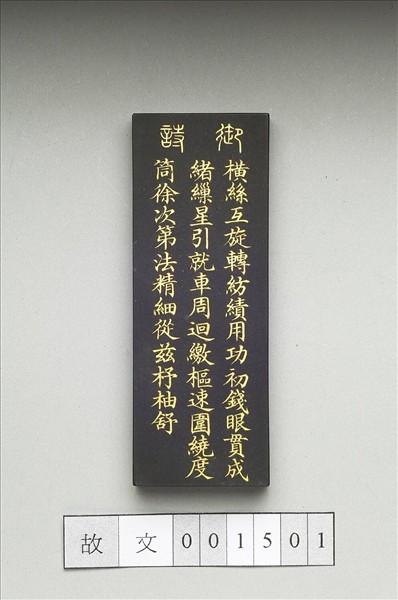 御詩
橫絲互旋轉紡績用功初錢眼貫成
緒繅星引就車周迴繳樞速圍繞度
筒徐次第法精細從玆杼柚舒
故文001501